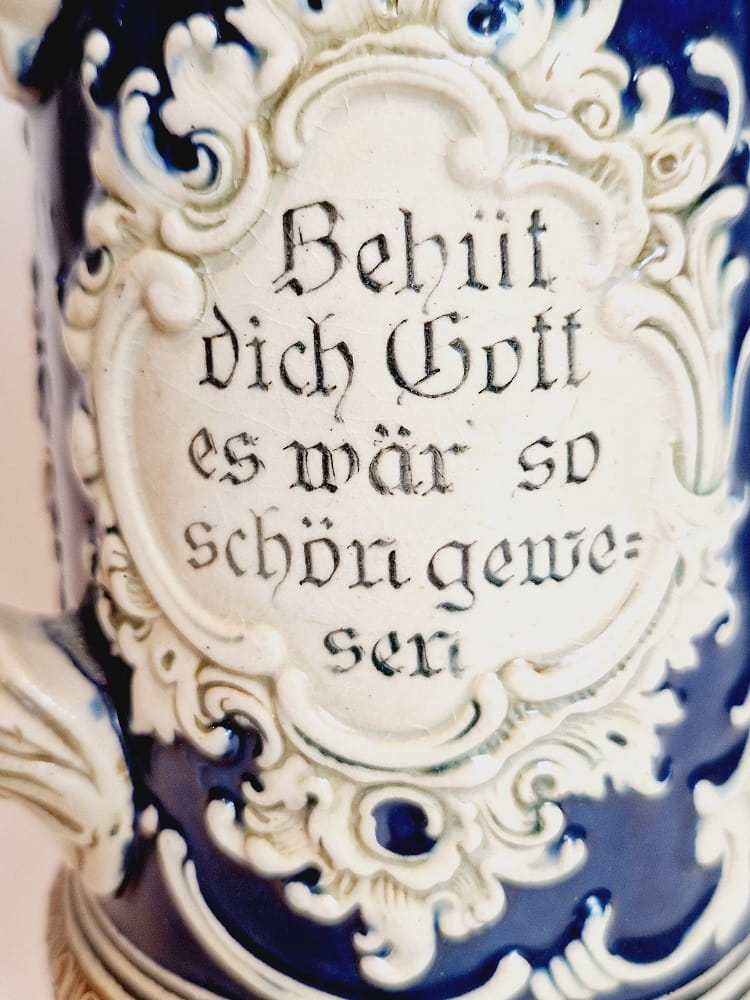 Behüt
dich Gott
es wär so
schön gewe=
sen